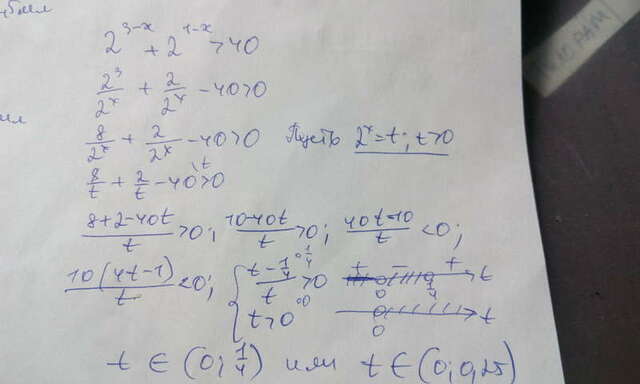 2^{3-x} + 2^{1-x} > 40
\frac{2^3}{2^x} + \frac{2}{2^x} - 40 > 0
\frac{8}{2^x} + \frac{2}{2^x} - 40 > 0 Пусть 2^x = t; t > 0
\frac{8}{t} + \frac{2}{t} - 40^{\backslash t} > 0
\frac{8+2-40t}{t} > 0; \frac{10-40t}{t} > 0; \frac{40t-10}{t} < 0;
\frac{10(4t-1)}{t} < 0; \begin{cases} \frac{t-\frac{1}{4}}{t} > 0 \\ t > 0 \end{cases} + - + 0 \frac{1}{4} t
0 t
t ∈ (0; \frac{1}{4}) или t ∈ (0; 0,25)